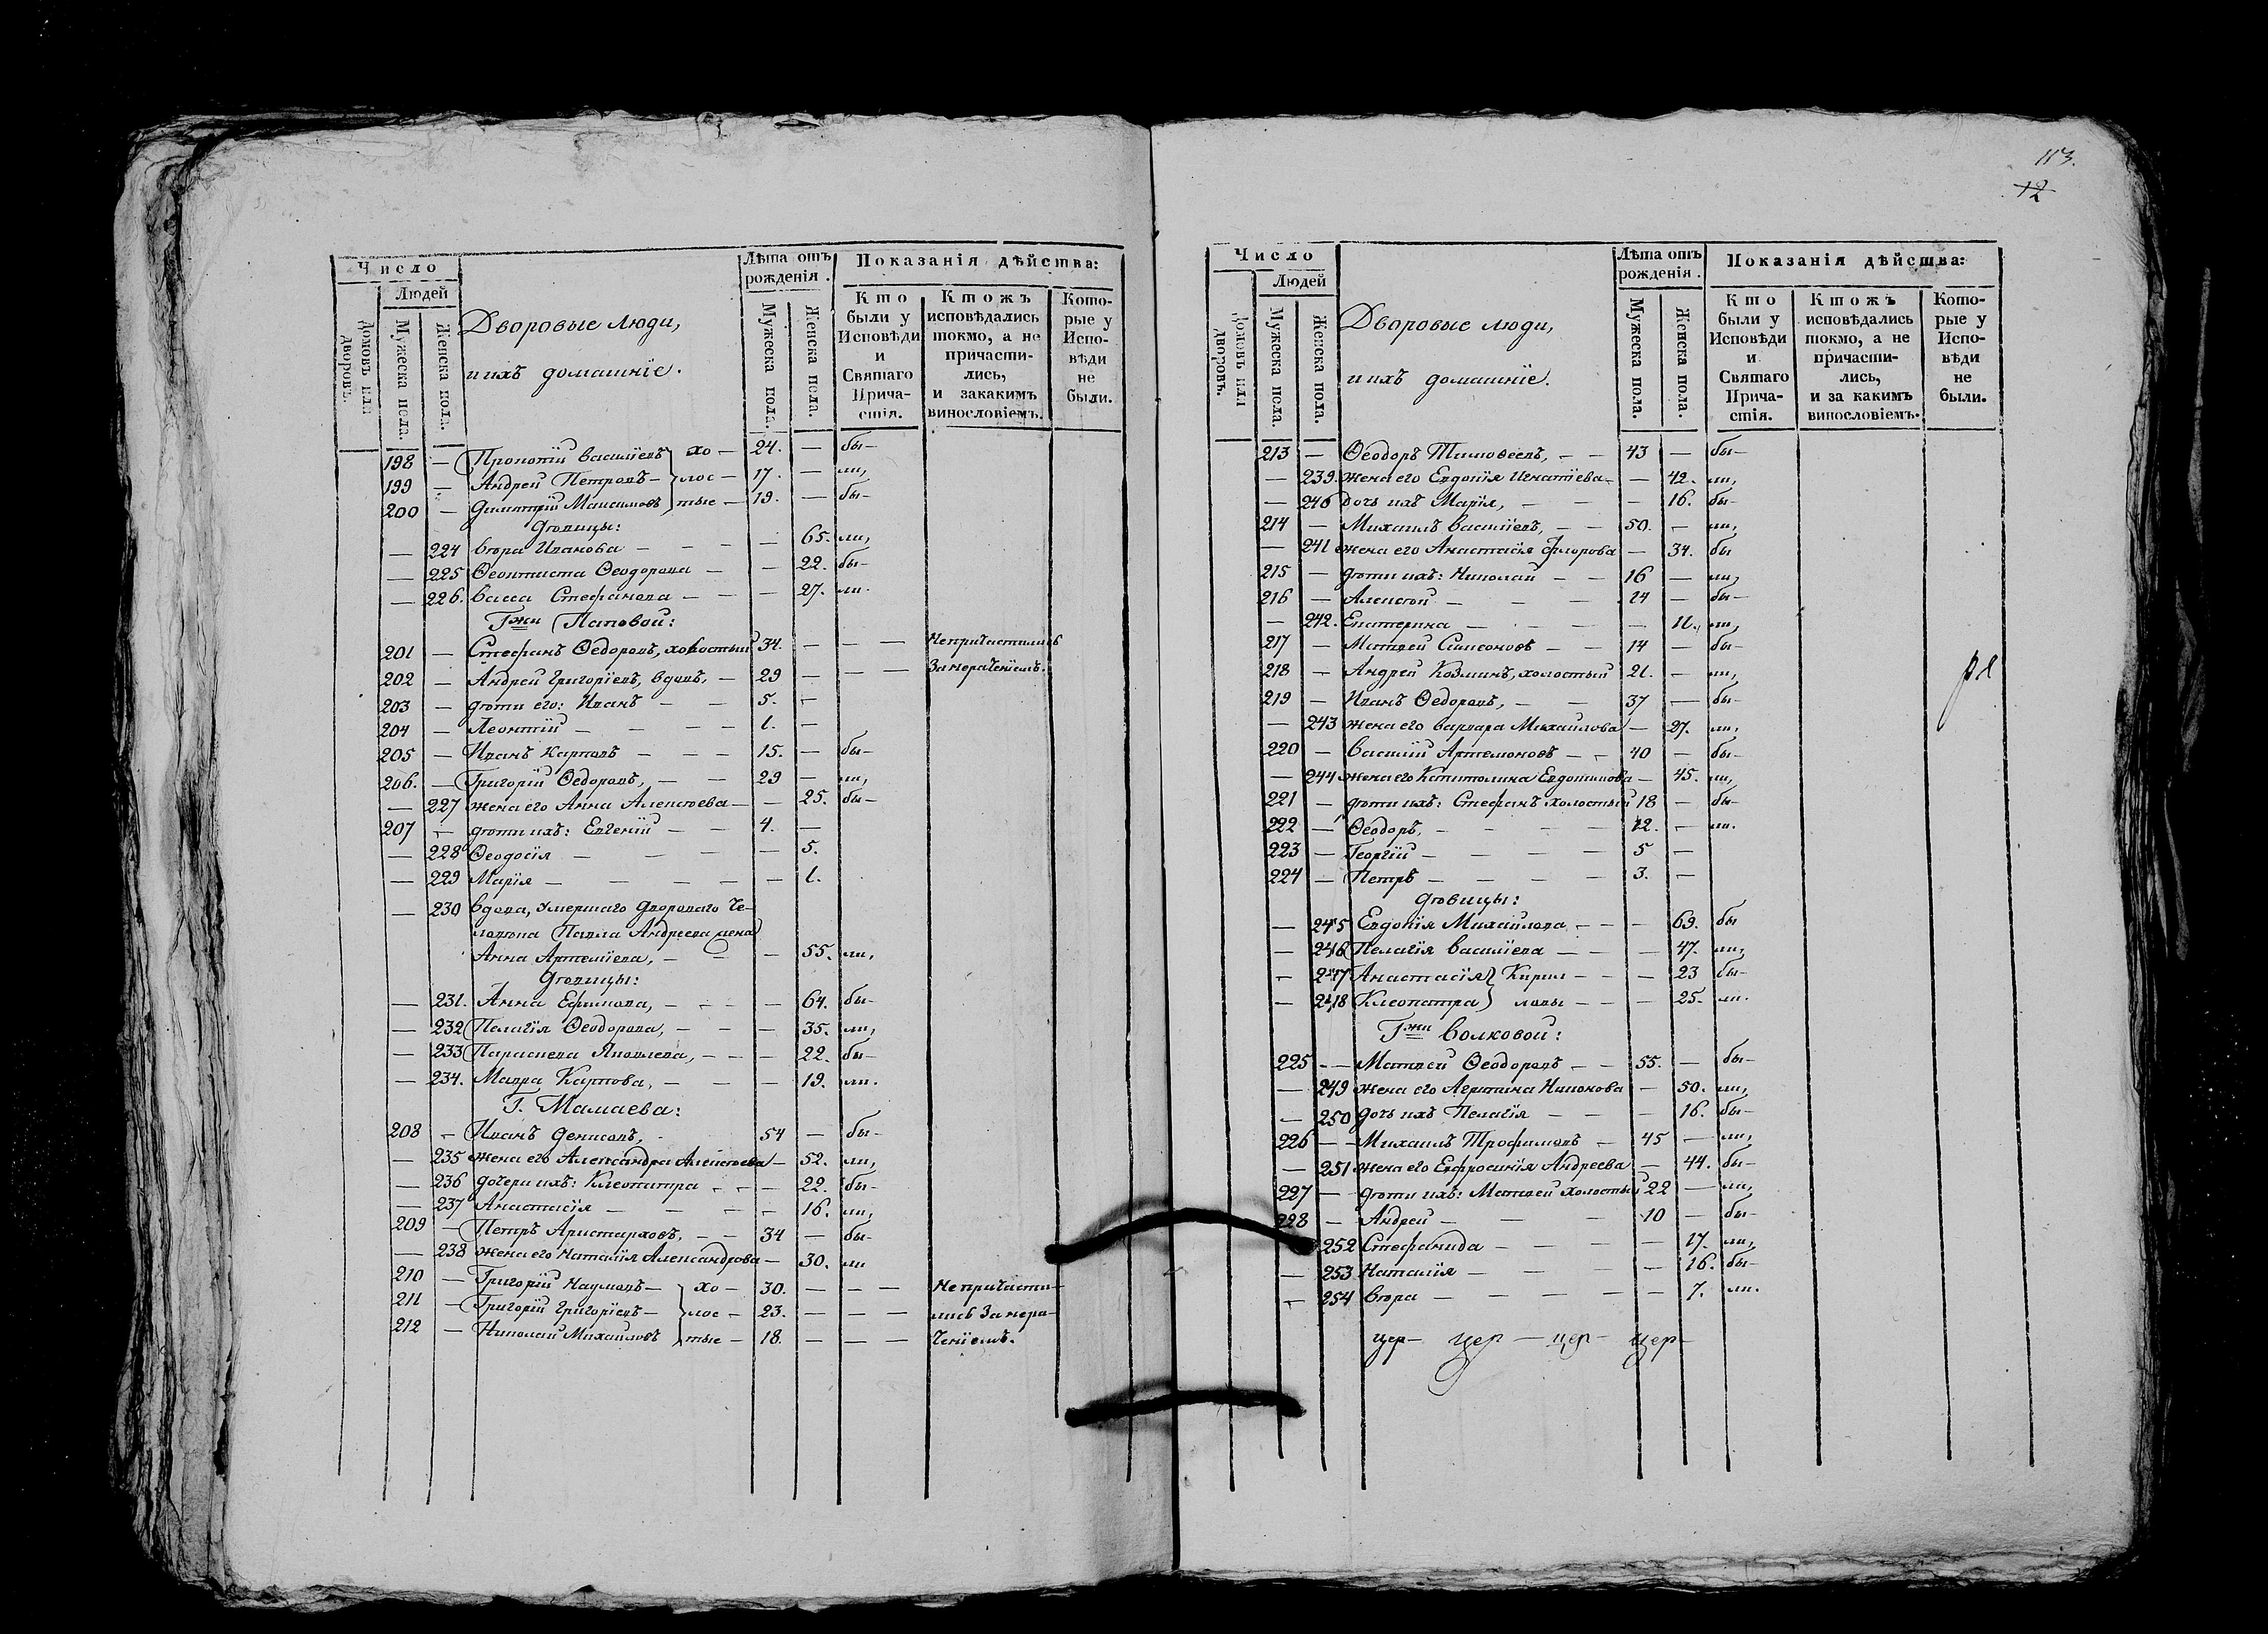 113.
12
Число
Людей
Домовъ или дворовъ.
Мужеска пола.
Женска пола.
Дворовые люди,
и ихъ домашнїе.
Лѣта отъ рожденія.
Мужеска пола.
Женска пола.
Показанія дѣйства:
Кто были у Исповѣди и Святаго Причастія.
Ктожъ исповѣдались токмо, а не причастились, и закакимъ винословіемъ.
Которые у Исповѣди не были.
198 — Прокопїй Васильевъ } хо — 24. — бы—
199 — Андрей Петровъ — } лос — 17. — ли,
200 — Димитрїй Максимовъ } тые — 19. — бы—
Дѣвицы:
— 224 Вѣра Иванова — — — — 65. ли,
— 225 Ѳеоктиста Ѳеодорова — — 22. бы—
— 226. Васса Стефанова — — — 27. ли.
Гжи Патовой:
201 — Стефанъ Ѳедоровъ, холостый 34. — — — Непричастились
202 — Андрей Григорїевъ, вдовъ, — 29 — — — Занераченїемъ.
203 — дѣти его: Иванъ — — 5. —
204 — Леонтїй — — — — 1. —
205 — Иванъ Карповъ — — — 15. — бы—
206. — Григорїй Ѳедоровъ, — — 29 — ли,
— 227 жена его Анна Алексѣева — — 25. бы—
207 — дѣти ихъ: Евгенїй — — 4. —
— 228 Ѳеодосїя — — — — 5.
— 229 Марїя — — — — — 1.
— 230 Вдова, умершаго двороваго че-
ловѣка Павла Андреева жена
Анна Артемїева, — — — 55. ли,
Дѣвицы:
— 231. Анна Ефимова, — — — 64. бы—
— 232 Пелагїя Ѳеодорова, — — — 35. ли,
— 233 Параскева Яковлева, — — — 22. бы—
— 234. Мавра Карпова, — — — 19. ли.
Г. Мамаева:
208 — Иванъ Денисовъ, 54 — бы—
— 235 жена его Александра Алексѣева — 52. ли,
— 236 дочери ихъ: Клеопатра — — — 22. бы—
— 237 Анастасїя — — — — 16. ли,
209 — Петръ Аристарховъ, — — 34 — бы—
— 238 жена его Наталїя Александрова — 30. ли
210 — Григорїй Наумовъ — } хо — 30. — — — Непричасти—
211 — Григорїй Григорїевъ — } лос — 23. — — — лись Занера—
212 — Николай Михайловъ } тые — 18. — — — ченїемъ.
Число
Людей
Домовъ или дворовъ.
Мужеска пола.
Женска пола.
Дворовые люди,
и ихъ домашнїе.
Лѣта отъ рожденія.
Мужеска пола.
Женска пола.
Показанія дѣйства:
Кто были у Исповѣди и Святаго Причастія.
Ктожъ исповѣдались токмо, а не причастились, и за какимъ винословіемъ.
Которые у Исповѣди не были.
213 — Ѳеодоръ Тимоѳеевъ, — — 43 — бы—
— 239. жена его Евдокїя Игнатїева — — 42. ли,
— 240 дочь ихъ Марїя, — — — 16. бы—
214 — Михаилъ Васильевъ, — — 50. — ли,
— 241 жена его Анастасїя Флорова — 34. бы
215 — дѣти ихъ: Николай — — 16 — ли,
216 — Алексѣй — — — 14 — бы—
— 242. Екатерина — — — — 11. ли,
217 — Матвей Самсоновъ — — 14 — бы—
218 — Андрей Козминъ, холостый 21. — ли,
219 — Иванъ Ѳедоровъ, — — 37 — бы—
— 243 жена его Варвара Михайлова — 27. ли,
220 — Василїй Артемоновъ — — 40 — бы—
— 244 жена его Капитолина Евдокимова — 45. ли,
221 — дѣти ихъ: Стефанъ холостый 18 — бы—
222 — Ѳеодоръ, — — — — 12. — ли.
223 — Георгїй — — — — 5 —
224 — Петръ — — — — 3. —
Дѣвицы:
— 245 Евдокїя Михайлова — — — 69. бы
— 246 Пелагїя Васильева — — — 47. ли,
— 247 Анастасїя } Кирил — — — 23 бы—
— 248 Клеопатра } ловы — — — 25. ли.
Гжи Волковой:
225 — — Матвей Ѳеодоровъ — — 55. — бы—
— 249 жена его Агрипина Никонова — 50. ли,
— 250 дочь ихъ Пелагїя — — — 16. бы—
226 — — Михаилъ Трофимовъ — 45 — ли,
— 251 жена его Евфросинїя Андреева — 44. бы—
227 — дѣти ихъ: Матвей холостый 22 — ли,
228 — Андрей — — — 10 — бы—
252 Стефанида — — — — 17. ли,
— 253 Наталїя — — — — 16. бы—
— 254 Вѣра — — — — — 7. ли.
цер— цер— цер— цер—